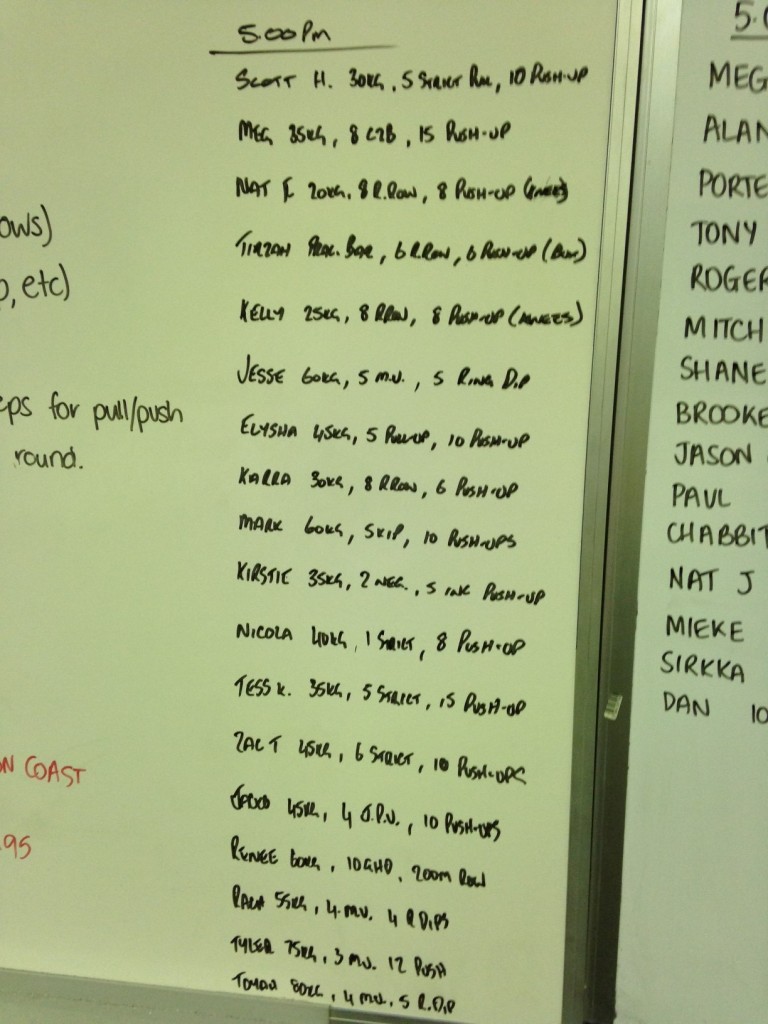 5.00pm
SCOTT H. 30KG, 5 STRICT PULL, 10 PUSH-UP
MEG 35KG, 8 C2B, 15 PUSH-UP
NAT 20KG, 8 R.ROW, 8 PUSH-UP (KNEES)
TIRZAH BAR, 6 R.ROW, 6 PUSH-UP
KELLY 25KG, 8 R.ROW, 8 PUSH-UP
JESSE 60KG, 5 M.U., 5 RING DIP
ELYSHA 45KG, 5 PULLUP, 10 PUSH-UP
KARRA 30KG, 8 R.ROW, 6 PUSH-UP
MARK 60KG, SKIP, 10 PUSH-UPS
KIRSTIE 35KG, 2 NEG., 5 INC PUSH-UP
NICOLA 40KG, 1 STRICT, 8 PUSH-UP
TESS K. 35KG, 5 STRICT, 15 PUSH-UP
ZAC T 45KG, 6 STRICT, 10 PUSH-UPS
45KG, 4 J.P.U., 10 PUSH-UPS
RENEE 60KG, 10 GHD, 200M ROW
55KG, 4 M.U. 4 R DIPS
TYLER 75KG, 3 M.U. 12 PUSH
80KG, 4 M.U, 5 R.DIP
ows)
p, etc)
eps for pull/push
round.
N COAST
95
5.0
MEG
ALAN
PORTE
TONY
ROGER
MITCH
SHANE
BROOKE
JASON
PAUL
CHABBIT
NAT J
MIEKE
SIRKKA
DAN 10